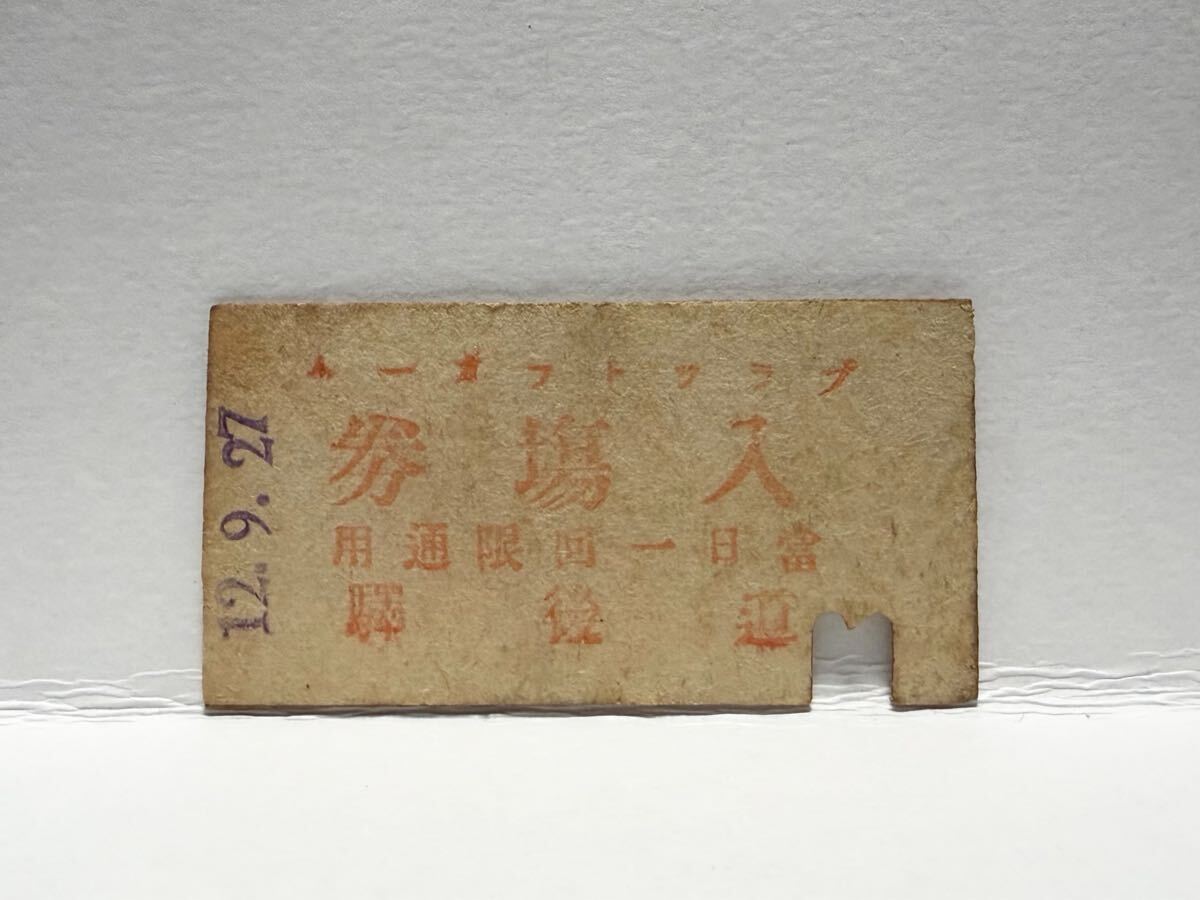 プラットフオーム
入場券
當日一回限通用
道後驛
12.9.27